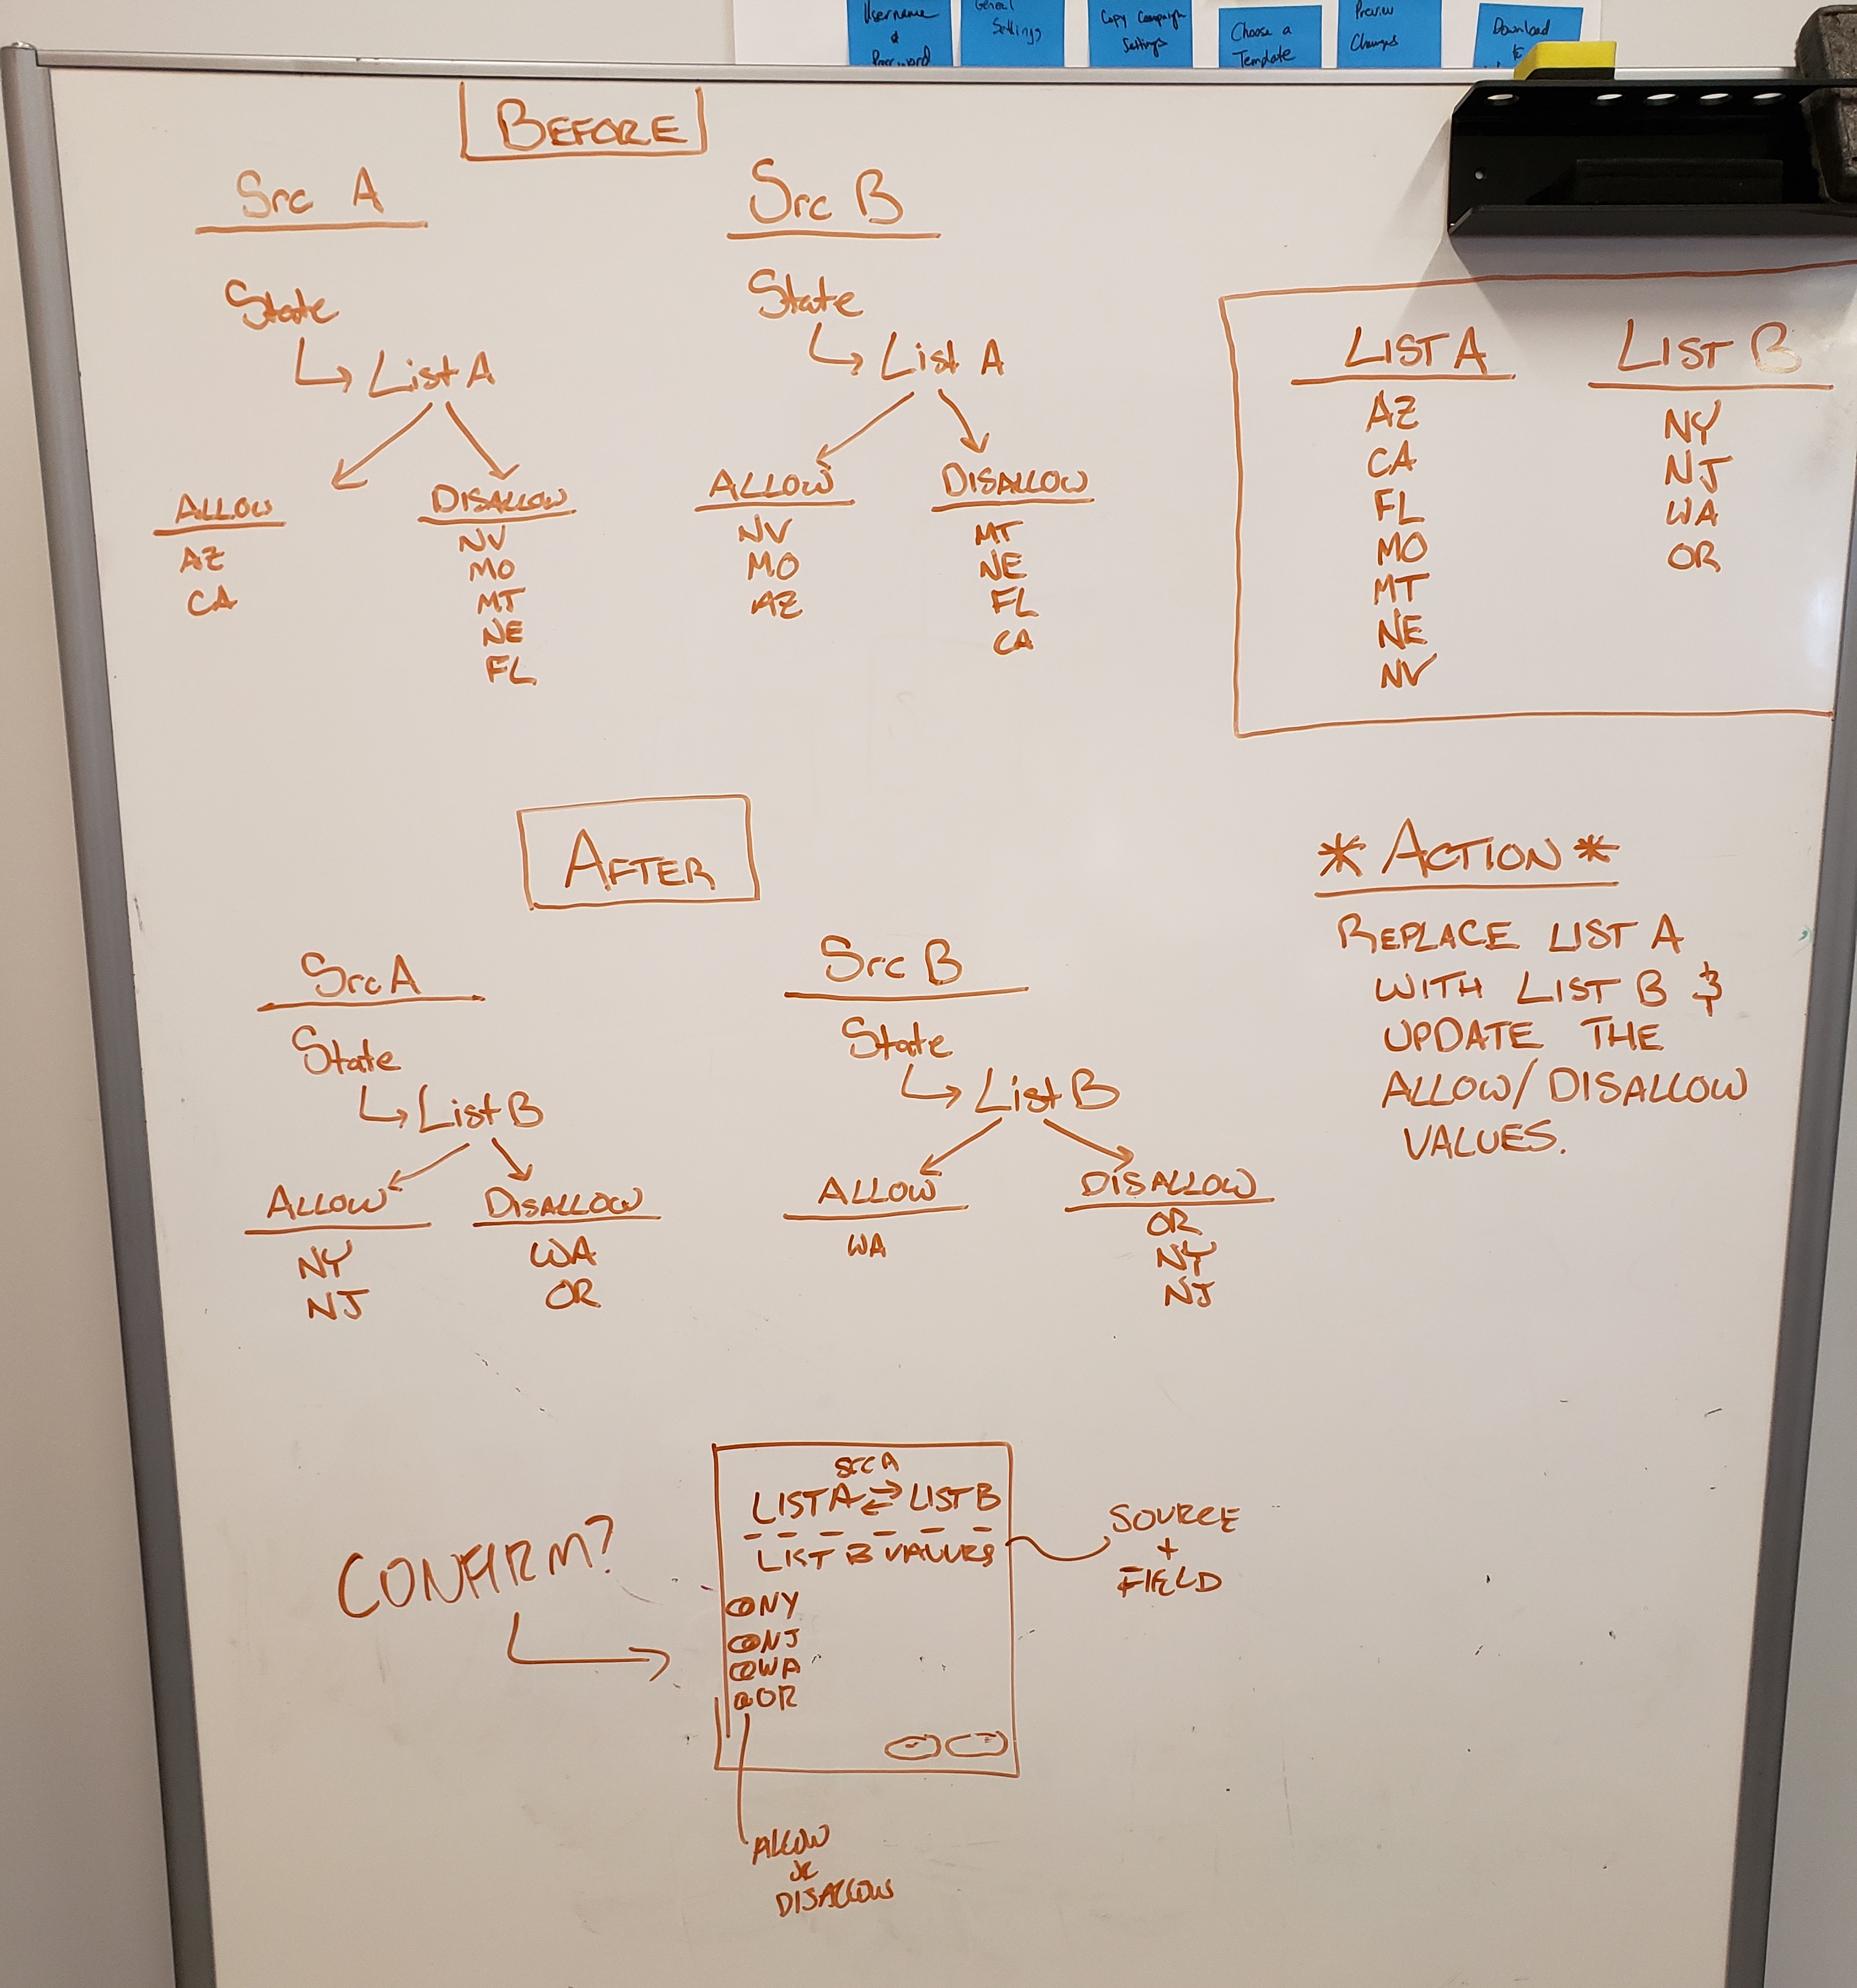 Username
&
Password
General
Settings
Copy Campaign
Settings
Choose a
Template
Preview
Changes
Download
to
BEFORE
Src A
State
List A
ALLOW
AZ
CA
DISALLOW
NV
MO
MT
NE
FL
Src B
State
List A
ALLOW
NV
MO
AZ
DISALLOW
MT
NE
FL
CA
LIST A
AZ
CA
FL
MO
MT
NE
NV
LIST B
NY
NJ
WA
OR
AFTER
Src A
State
List B
ALLOW
NY
NJ
DISALLOW
WA
OR
Src B
State
List B
ALLOW
WA
DISALLOW
OR
NY
NJ
* ACTION *
REPLACE LIST A
WITH LIST B &
UPDATE THE
ALLOW/DISALLOW
VALUES.
CONFIRM?
SRC A
LIST A ⇄ LIST B
LIST B VALUES
NY
NJ
WA
OR
SOURCE
+
FIELD
ALLOW
or
DISALLOW